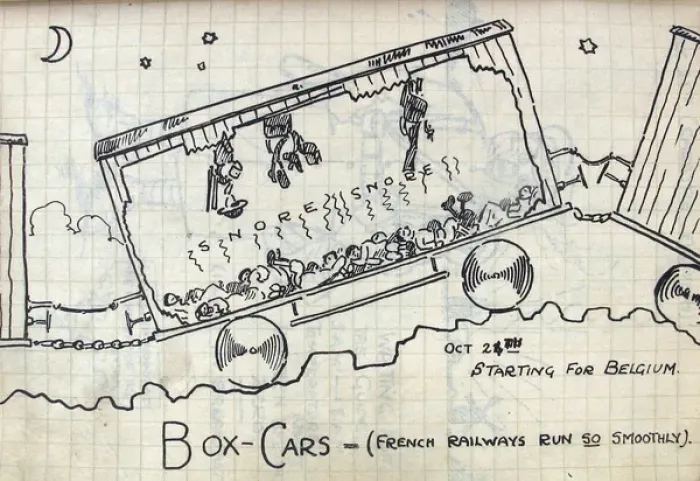 SNORE SNORE
OCT
STARTING FOR BELGIUM.
BOX-CARS = (FRENCH RAILWAYS RUN SO SMOOTHLY).